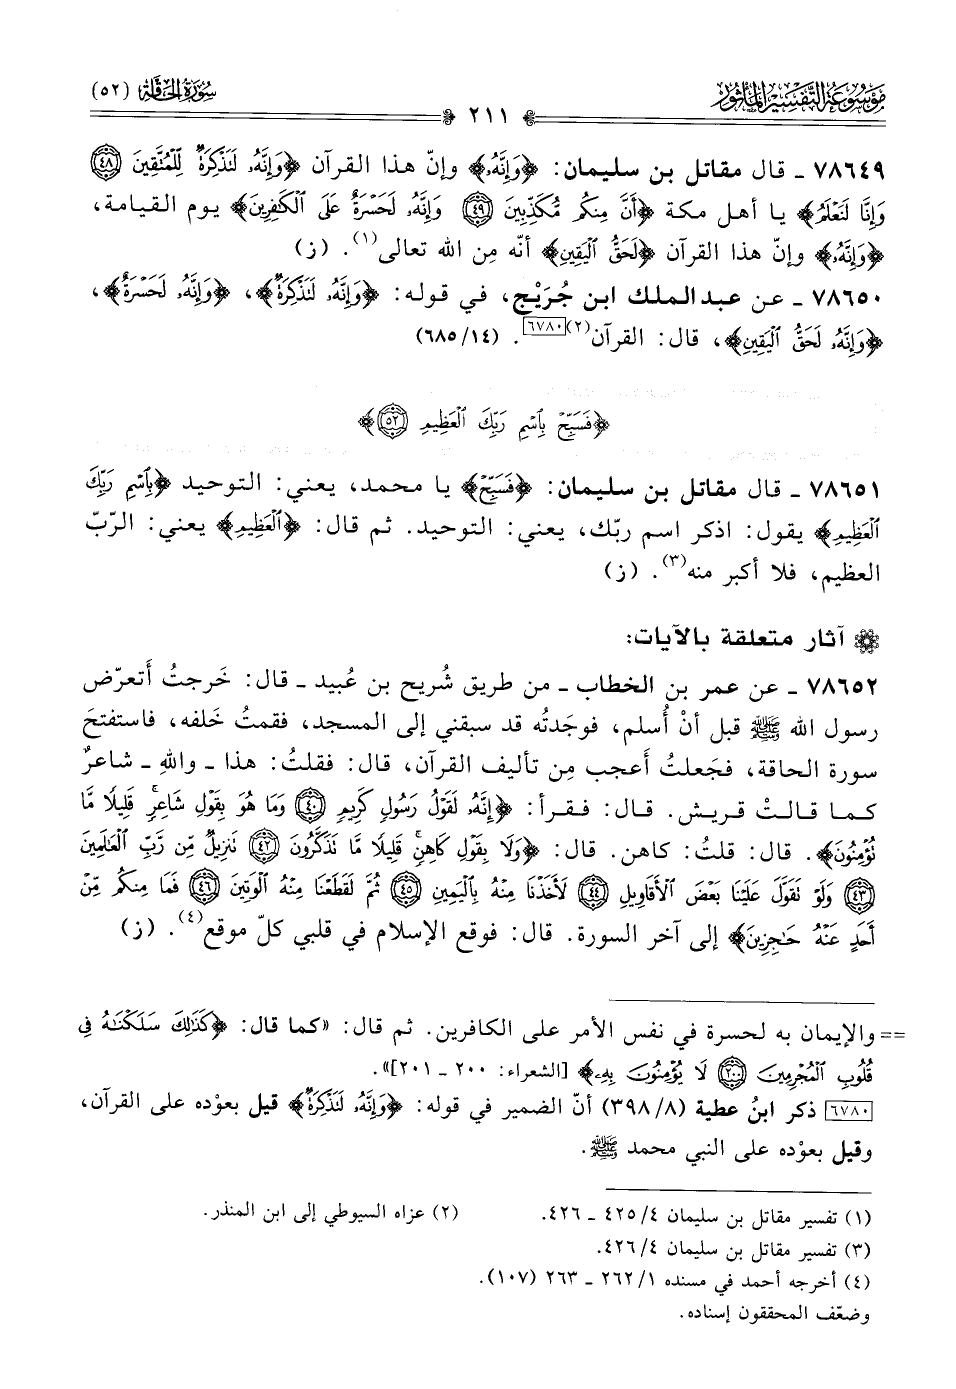 موسوعة التفسير المأثور
سورة الحاقة (٥٢)
٢١١
٧٨٦٤٩ ـ قال مقاتل بن سليمان: ﴿وَإِنَّهُۥ﴾ وإنّ هذا القرآن ﴿وَإِنَّهُۥ لَتَذْكِرَةٌ لِّلْمُتَّقِينَ ٤٨
وَإِنَّا لَنَعْلَمُ﴾ يا أهل مكة ﴿أَنَّ مِنكُم مُّكَذِّبِينَ ٤٩ وَإِنَّهُۥ لَحَسْرَةٌ عَلَى ٱلْكَٰفِرِينَ﴾ يوم القيامة،
﴿وَإِنَّهُۥ﴾ وإنّ هذا القرآن ﴿لَحَقُّ ٱلْيَقِينِ﴾ أنّه مِن الله تعالى(١). (ز)
٧٨٦٥٠ ـ عن عبد الملك ابن جُرَيْج، في قوله: ﴿وَإِنَّهُۥ لَتَذْكِرَةٌ﴾، ﴿وَإِنَّهُۥ لَحَسْرَةٌ﴾،
﴿وَإِنَّهُۥ لَحَقُّ ٱلْيَقِينِ﴾، قال: القرآن(٢)[٦٧٨٠]. (١٤/ ٦٨٥)
﴿فَسَبِّحْ بِٱسْمِ رَبِّكَ ٱلْعَظِيمِ ٥٢﴾
٧٨٦٥١ ـ قال مقاتل بن سليمان: ﴿فَسَبِّحْ﴾ يا محمد، يعني: التوحيد ﴿بِٱسْمِ رَبِّكَ
ٱلْعَظِيمِ﴾ يقول: اذكر اسم ربّك، يعني: التوحيد. ثم قال: ﴿ٱلْعَظِيمِ﴾ يعني: الرّبّ
العظيم، فلا أكبر منه(٣). (ز)
آثار متعلقة بالآيات:
٧٨٦٥٢ ـ عن عمر بن الخطاب ـ من طريق شُريح بن عُبيد ـ قال: خَرجتُ أَتعرّض
رسول الله ﷺ قبل أنْ أُسلم، فوجَدتُه قد سبقني إلى المسجد، فقمتُ خَلفه، فاستفتحَ
سورة الحاقة، فجَعلتُ أَعجب مِن تأليف القرآن، قال: فقلتُ: هذا ـ واللهِ ـ شاعرٌ
كما قالتْ قريش. قال: فقرأ: ﴿إِنَّهُۥ لَقَوْلُ رَسُولٍ كَرِيمٍ ٤٠ وَمَا هُوَ بِقَوْلِ شَاعِرٍ قَلِيلًا مَّا
تُؤْمِنُونَ﴾. قال: قلتُ: كاهن. قال: ﴿وَلَا بِقَوْلِ كَاهِنٍ قَلِيلًا مَّا تَذَكَّرُونَ ٤٢ تَنزِيلٌ مِّن رَّبِّ ٱلْعَٰلَمِينَ
٤٣ وَلَوْ تَقَوَّلَ عَلَيْنَا بَعْضَ ٱلْأَقَاوِيلِ ٤٤ لَأَخَذْنَا مِنْهُ بِٱلْيَمِينِ ٤٥ ثُمَّ لَقَطَعْنَا مِنْهُ ٱلْوَتِينَ ٤٦ فَمَا مِنكُم مِّنْ
أَحَدٍ عَنْهُ حَٰجِزِينَ﴾ إلى آخر السورة. قال: فوقع الإسلام في قلبي كلّ موقع(٤). (ز)
== والإيمان به لحسرة في نفس الأمر على الكافرين. ثم قال: «كما قال: ﴿كَذَٰلِكَ سَلَكْنَٰهُ فِى
قُلُوبِ ٱلْمُجْرِمِينَ ٢٠٠ لَا يُؤْمِنُونَ بِهِۦ﴾ [الشعراء: ٢٠٠ ـ ٢٠١]».
[٦٧٨٠] ذكر ابنُ عطية (٨/ ٣٩٨) أنّ الضمير في قوله: ﴿وَإِنَّهُۥ لَتَذْكِرَةٌ﴾ قيل بعوْده على القرآن،
وقيل بعوْده على النبي محمد ﷺ.
(١) تفسير مقاتل بن سليمان ٤/ ٤٢٥ ـ ٤٢٦. (٢) عزاه السيوطي إلى ابن المنذر.
(٣) تفسير مقاتل بن سليمان ٤/ ٤٢٦.
(٤) أخرجه أحمد في مسنده ١/ ٢٦٢ ـ ٢٦٣ (١٠٧).
وضعّف المحققون إسناده.